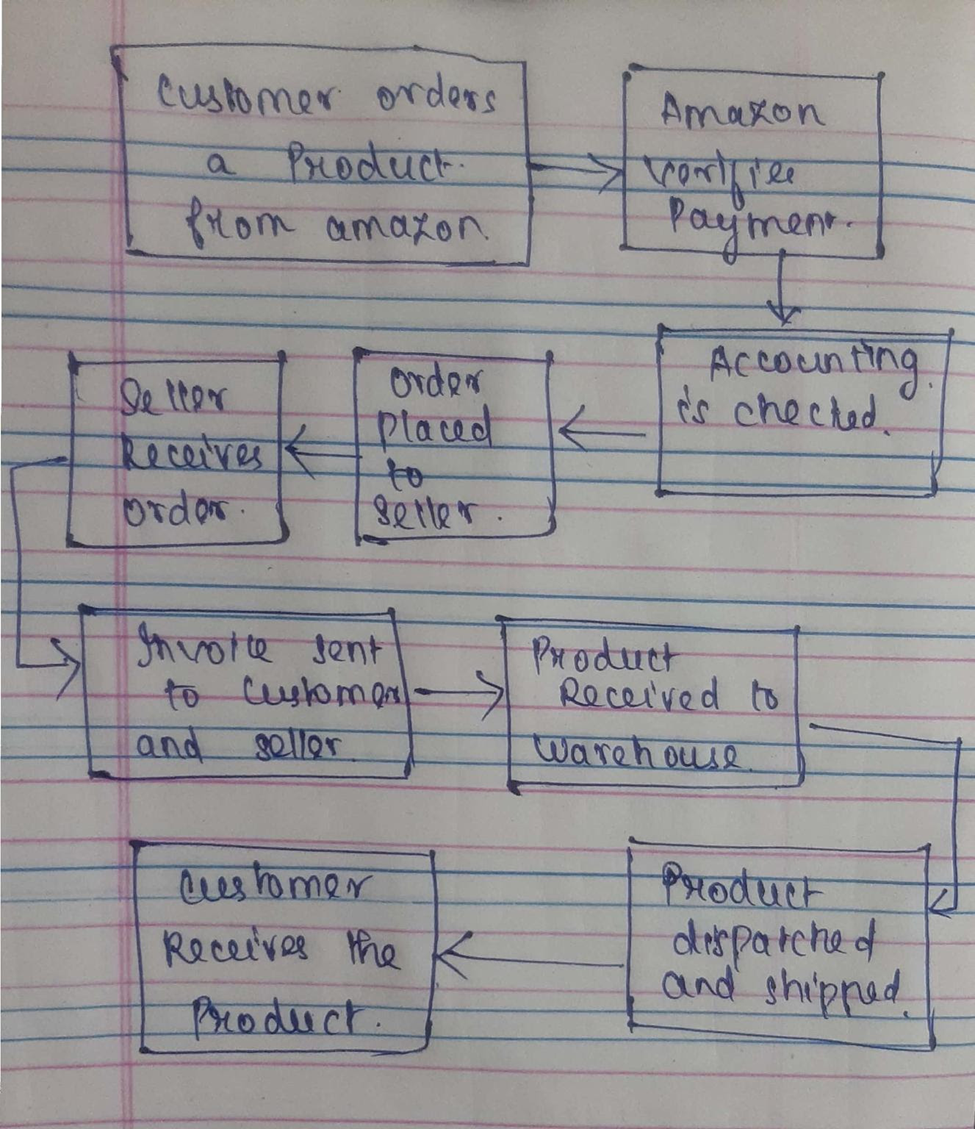 Customer orders
a Product.
from amazon.
Amazon
Verifies
Payment.
Accounting.
is checked.
Order
Placed
to
seller.
Seller
Receives
order.
Invoice sent
to customer
and seller.
Product
Received to
warehouse.
Product
dispatched
and shipped.
Customer
Receives the
Product.